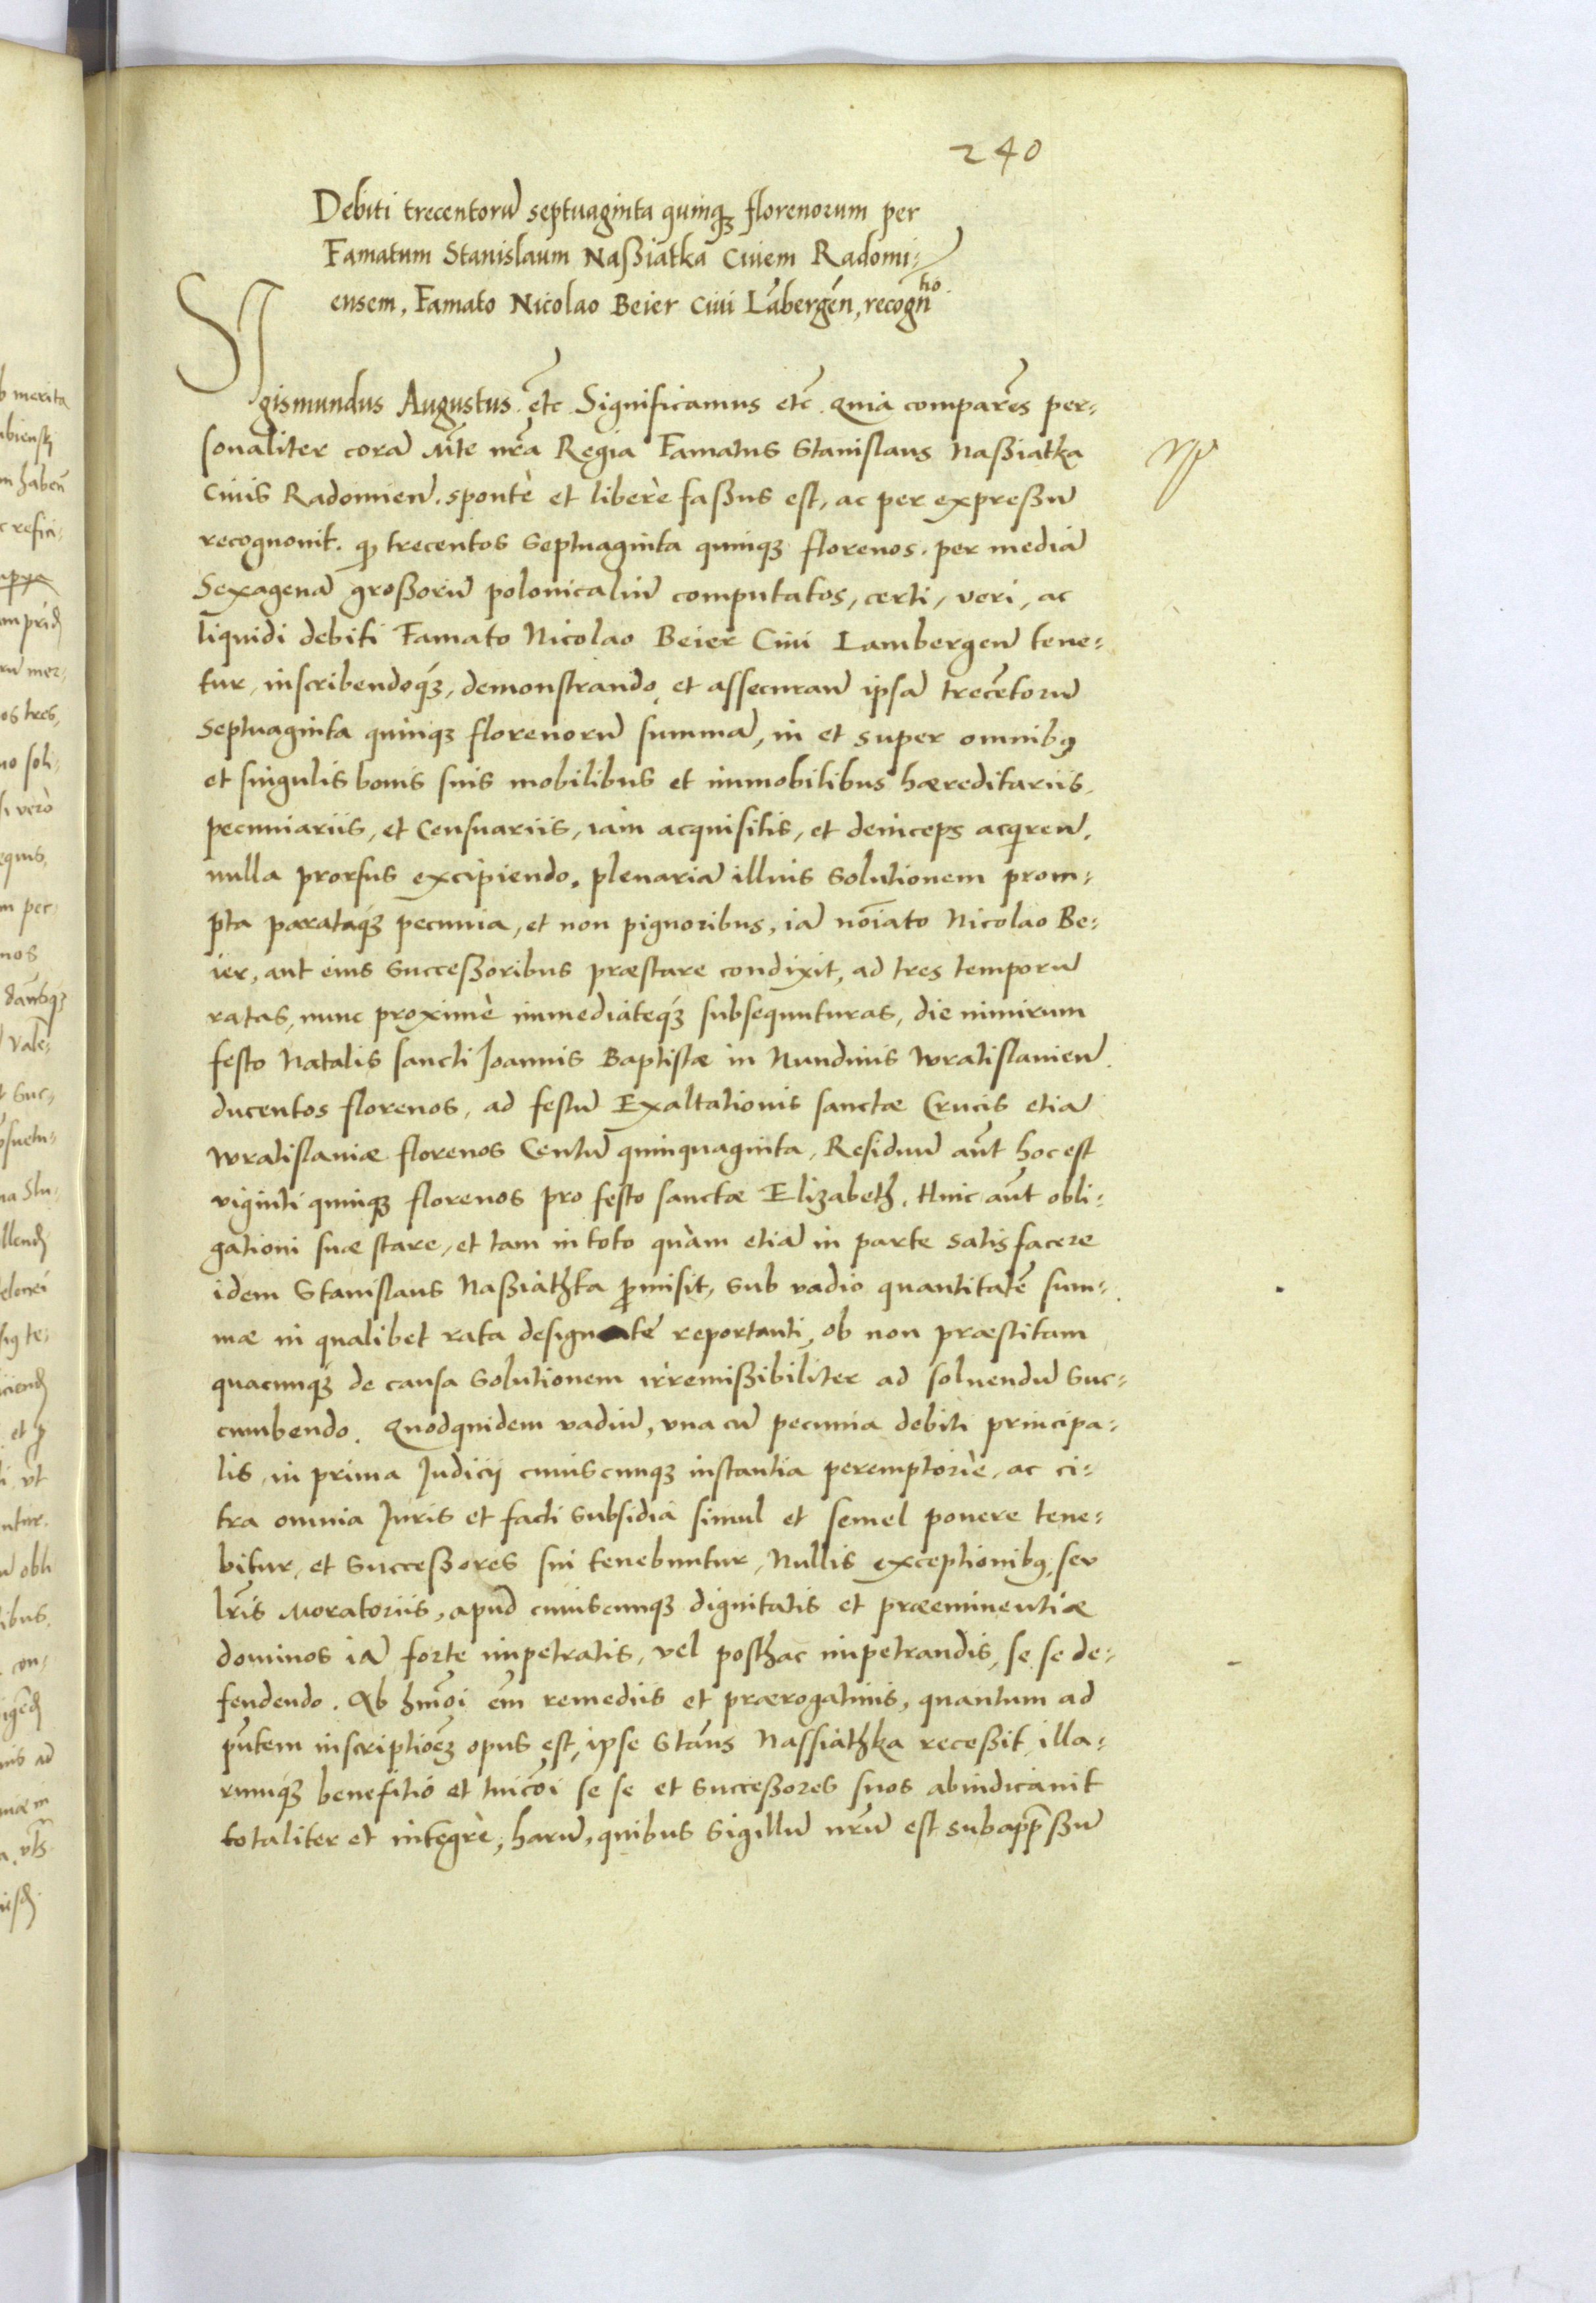 240
Debiti trecentorū septuaginta quinqꝫ florenorum per
Famatum Stanislaum Naßiatka Ciuem Radomi-
ensem, Famato Nicolao Beier Ciui Lābergeñ, recognᵗⁱᵒ.
SIgismundus Augustus etc̃ Significamus etc̃. Quia compareñs per-
sonaliter corā M̃te nr̃a Regia Famatus Stanislaus Naßiatka
Ciuis Radomieñ. spontè et liberè faßus est, ac per expreßū
recognouit. ꝙ trecentos septuaginta quinqꝫ florenos. per mediā
Sexagenā großorū polonicaliū computatos, certi, veri, ac
liquidi debiti Famato Nicolao Beier Ciui Lambergeñ tene-
tur, inscribendoqꝫ, demonstrando, et assecurañ ipsā trecētorū
septuaginta quinqꝫ florenorū summā, in et super omnibꝰ
et singulis bonis suis mobilibus et immobilibus hæreditariis,
pecuniariis, et Censuariis, iam acquisitis, et deinceps acqireñ,
nulla prorsus excipiendo. plenariā illius solutionem prom-
pta parataqꝫ pecunia, et non pignoribus, iā noĩato Nicolao Be-
ier, aut eius successoribus præstare condixit, ad tres temporū
ratas, nunc proximè immediateqꝫ subsequuturas, die nimirum
festo Natalis sancti Joannis Baptistæ in Nundinis Wratislauieñ
ducentos florenos, ad festū Exaltationis sanctæ Crucis etiā
Wratislauiæ florenos Centū quinquaginta, Residuū aũt hoc est
viginti quinqꝫ florenos pro festo sanctæ Elizabeth. Huic aũt obli-
gationi suæ stare, et tam in toto quàm etiā in parte satisfacere
idem Stanislaus Naßiathka ꝓmisit, sub vadio quantitatẽ sum-
mæ in qualibet rata designatẽ reportanti, ob non præstitam
quacunqꝫ de causa solutionem irremißibiliter ad soluendū suc-
cumbendo. Quodquidem vadiū, vna cū pecunia debiti principa-
lis, in prima Judicij cuiuscunqꝫ instantia peremptoriè, ac ci-
tra omnia Juris et facti subsidia simul et semel ponere tene-
bitur, et succeßores sui tenebuntur, Nullis exceptionibꝰ, seu
lr̃is Moratoriis, apud cuiuscunqꝫ dignitatis et præeminentiæ
dominos iā forte impetratis, vel posthac impetrandis, se se de-
fendendo. Ab hm̃oi em̃ remediis et prærogatiuis, quantum ad
pñtem inscriptiõeꝫ opus est, ipse Stañus Nassiathka receßit, illa-
rumqꝫ benefitio et tuicõi se se et succeßores suos abiudicauit
totaliter et integrè, harū, quibus sigillū nr̃ū est subapp̃ßū